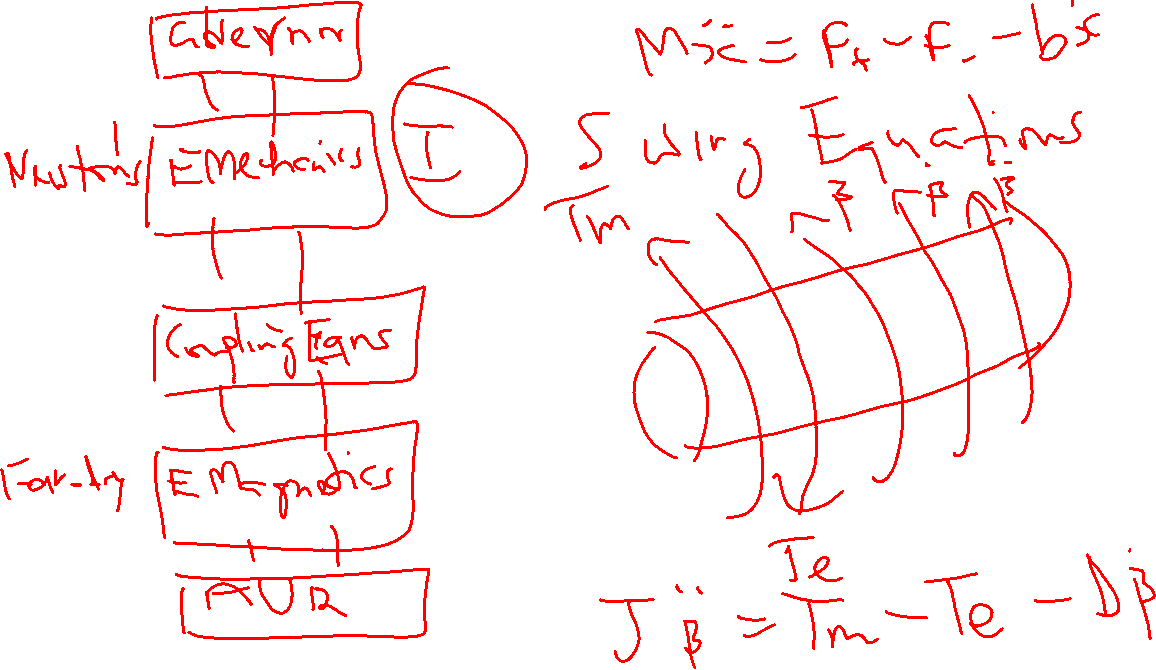 Governor
Newton's
EMechanics
I
Coupling Eqns
Faraday
EMagnetics
AVR
Mẍ = F₊ - F₋ - bẋ
Swing Equations
Tm
β̇ β̈ β
Te
Jβ̈ = Tm - Te - Dβ̇